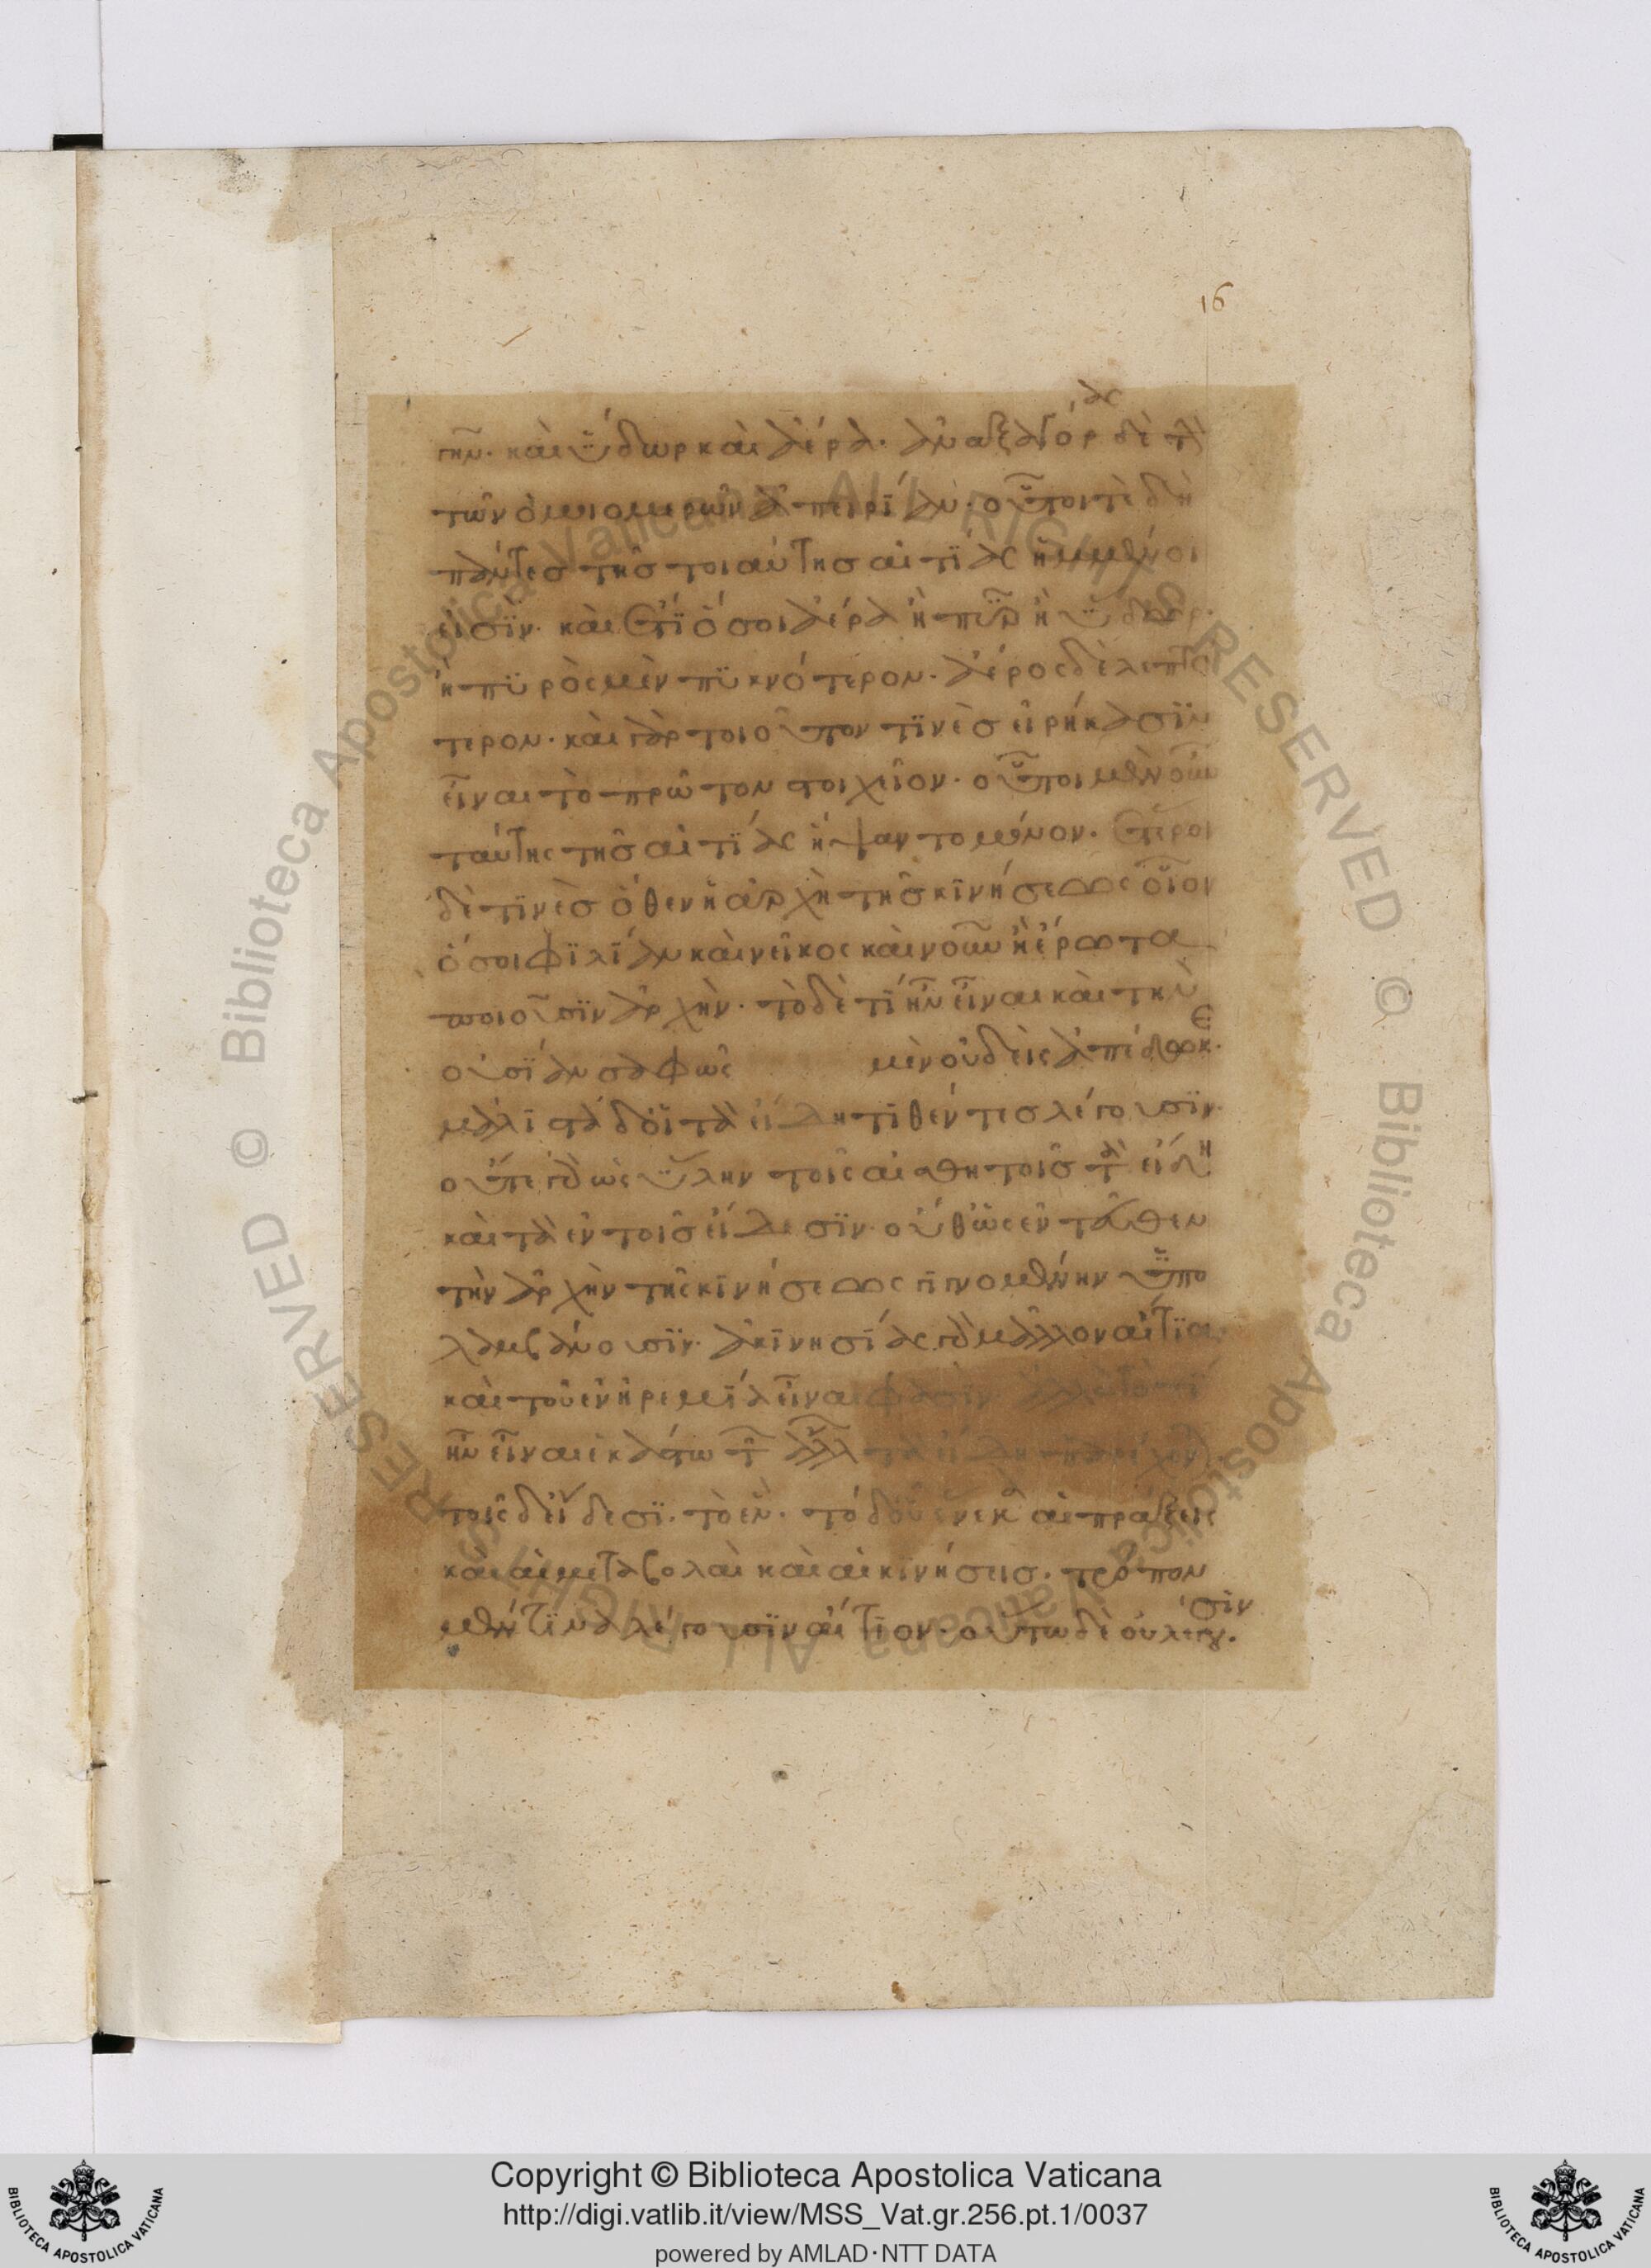 16
γῆν· καὶ ὕδωρ καὶ ἀέρα. ἀναξαγόρας δὲ τὴν
τῶν ὁμοιομερῶν ἀπειρίαν. οὗτοί τε δὴ
πάντες τῆς τοιαύτης αἰτίας ἡμμένοι
εἰσῒν. καὶ ἔτϊ ὅσοι ἀέρα ἢ πῦρ ἢ ὕδωρ.
ἢ πϋρὸς μὲν πϋκνότερον. ἀέρος δὲ λεπτό
τερον. καὶ γὰρ τοιοῦτον τϊνὲς εἰρήκασϊν
εἶναι τὸ πρῶτον στοιχεῖον. οὗτοι μὲν οὖν
ταύτης τῆς αἰτίας ἥψαντο μόνον. ἕτεροι
δὲ τϊνὲς ὅθεν ἡ ἀρχὴ τῆς κϊνήσεως οἷον
ὅσοι φϊλίαν καὶ νεῖκος καὶ νοῦν ἢ ἔρωτα
ποιοῦσϊν ἀρχήν. τὸ δὲ τί ἦν εἶναι καὶ τὴν
οὐσίαν σαφῶς μὲν οὐδεὶς ἀπέδωκε.
μάλιστα δ' οἱ τὰ εἴδη τϊθέντες λέγουσϊν.
οὔτε γὰρ ὡς ὕλην τοῖς αἰσθητοῖς τὰ εἴδη
καὶ τὰ ἐν τοῖς εἴδεσϊν. οὔθ' ὡς ἐντεῦθεν
τὴν ἀρχὴν τῆς κϊνήσεως γϊγνομένην ὑπο
λαμβάνουσϊν. ἀκϊνησίας γὰρ μᾶλλον αἴτϊα
καὶ τοῦ ἐν ἠρεμίᾳ εἶναι φασὶν ἀλλὰ τὸ τί
ἦν εἶναι ἑκάστῳ τῶν ἄλλων τὰ εἴδη παρέχονται.
τοῖς δ' εἴδεσϊ. τὸ ἕν. τὸ δ' οὗ ἕνεκα αἱ πράξεις
καὶ αἱ μεταβολαὶ καὶ αἱ κϊνήσεις. τρόπον
μέν τϊνα λέγουσϊν αἴτϊον. οὕτω δὲ οὐ λέγουσιν.
Copyright © Biblioteca Apostolica Vaticana
http://digi.vatlib.it/view/MSS_Vat.gr.256.pt.1/0037
powered by AMLAD·NTT DATA